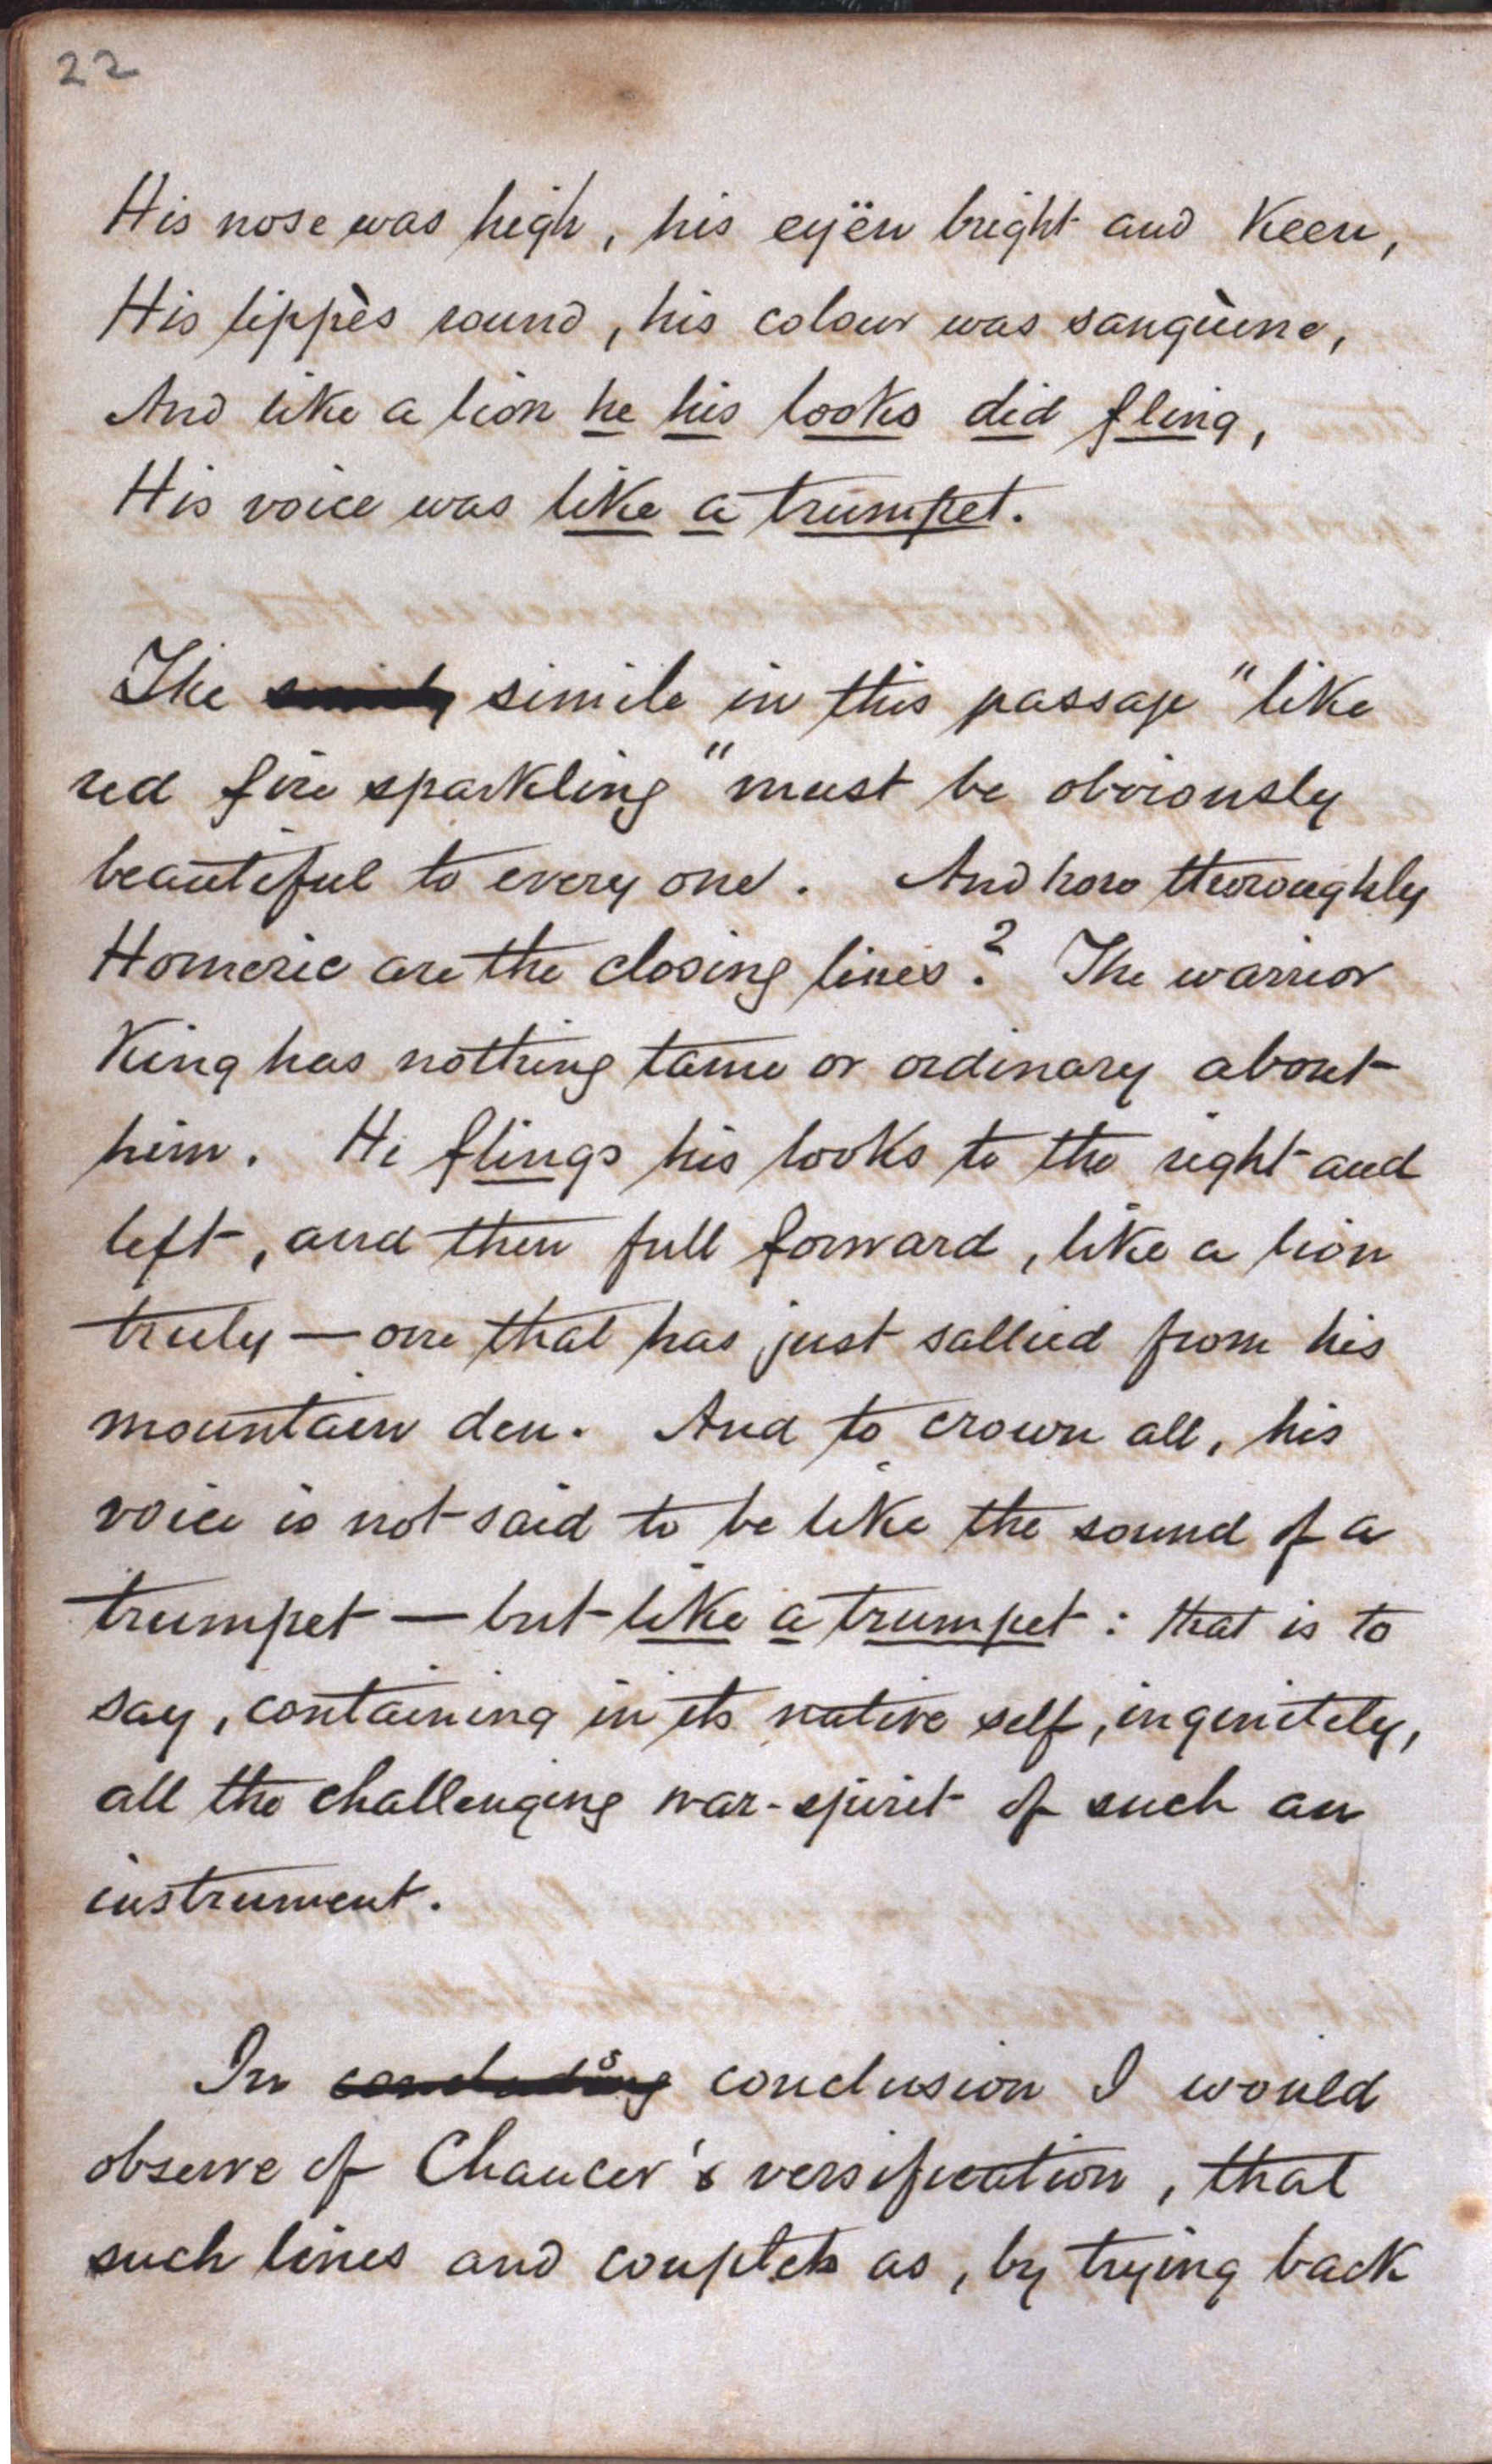 22
His nose was high, his eyën bright and keen,
His lippès round, his colour was sanguène,
And like a lion he his looks did fling,
His voice was like a trumpet.
The simile in this passage "like
red fire sparkling" must be obviously
beautiful to every one. And how thoroughly
Homeric are the closing lines? The warrior
King has nothing tame or ordinary about
him. He flings his looks to the right and
left, and then full forward, like a lion
truly — one that has just sallied from his
mountain den. And to crown all, his
voice is not said to be like the sound of a
trumpet — but like a trumpet: that is to
say, containing in its native self, ingenitely,
all the challenging war-spirit of such an
instrument.
In concluding conclusion I would
observe of Chaucer's versification, that
such lines and couplets as, by trying back